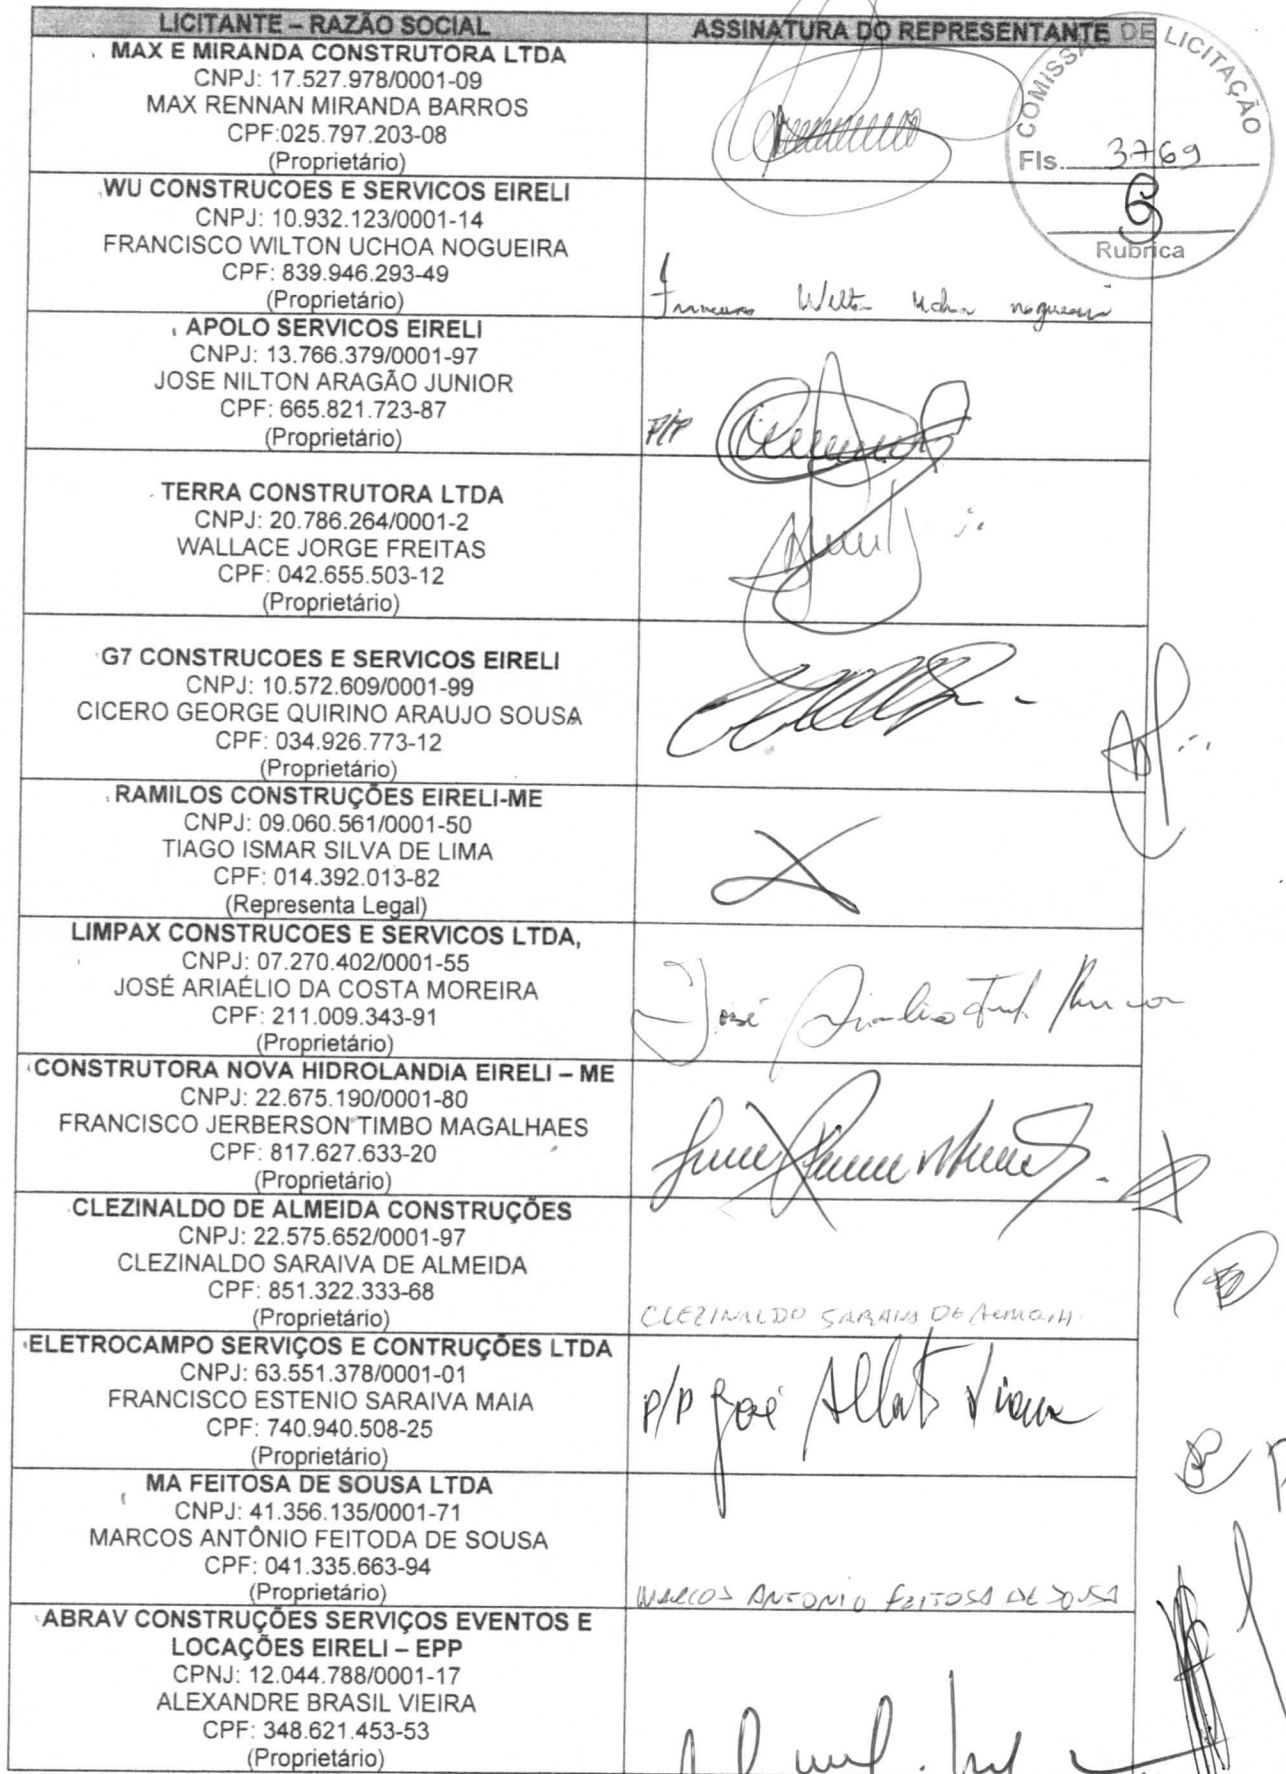 LICITANTE – RAZÃO SOCIAL
ASSINATURA DO REPRESENTANTE
COMISSÃO DE LICITAÇÃO
Fls. 3769
Rubrica
MAX E MIRANDA CONSTRUTORA LTDA
CNPJ: 17.527.978/0001-09
MAX RENNAN MIRANDA BARROS
CPF:025.797.203-08
(Proprietário)
WU CONSTRUCOES E SERVICOS EIRELI
CNPJ: 10.932.123/0001-14
FRANCISCO WILTON UCHOA NOGUEIRA
CPF: 839.946.293-49
(Proprietário)
APOLO SERVICOS EIRELI
CNPJ: 13.766.379/0001-97
JOSE NILTON ARAGÃO JUNIOR
CPF: 665.821.723-87
(Proprietário)
P/P
TERRA CONSTRUTORA LTDA
CNPJ: 20.786.264/0001-2
WALLACE JORGE FREITAS
CPF: 042.655.503-12
(Proprietário)
G7 CONSTRUCOES E SERVICOS EIRELI
CNPJ: 10.572.609/0001-99
CICERO GEORGE QUIRINO ARAUJO SOUSA
CPF: 034.926.773-12
(Proprietário)
RAMILOS CONSTRUÇÕES EIRELI-ME
CNPJ: 09.060.561/0001-50
TIAGO ISMAR SILVA DE LIMA
CPF: 014.392.013-82
(Representa Legal)
LIMPAX CONSTRUCOES E SERVICOS LTDA,
CNPJ: 07.270.402/0001-55
JOSÉ ARIAÉLIO DA COSTA MOREIRA
CPF: 211.009.343-91
(Proprietário)
José
CONSTRUTORA NOVA HIDROLANDIA EIRELI – ME
CNPJ: 22.675.190/0001-80
FRANCISCO JERBERSON TIMBO MAGALHAES
CPF: 817.627.633-20
(Proprietário)
CLEZINALDO DE ALMEIDA CONSTRUÇÕES
CNPJ: 22.575.652/0001-97
CLEZINALDO SARAIVA DE ALMEIDA
CPF: 851.322.333-68
(Proprietário)
CLEZINALDO SARAIVA DE
ELETROCAMPO SERVIÇOS E CONTRUÇÕES LTDA
CNPJ: 63.551.378/0001-01
FRANCISCO ESTENIO SARAIVA MAIA
CPF: 740.940.508-25
(Proprietário)
P/P José
MA FEITOSA DE SOUSA LTDA
CNPJ: 41.356.135/0001-71
MARCOS ANTÔNIO FEITODA DE SOUSA
CPF: 041.335.663-94
(Proprietário)
MARCOS ANTONIO FEITOSA DE SOUSA
ABRAV CONSTRUÇÕES SERVIÇOS EVENTOS E
LOCAÇÕES EIRELI – EPP
CPNJ: 12.044.788/0001-17
ALEXANDRE BRASIL VIEIRA
CPF: 348.621.453-53
(Proprietário)